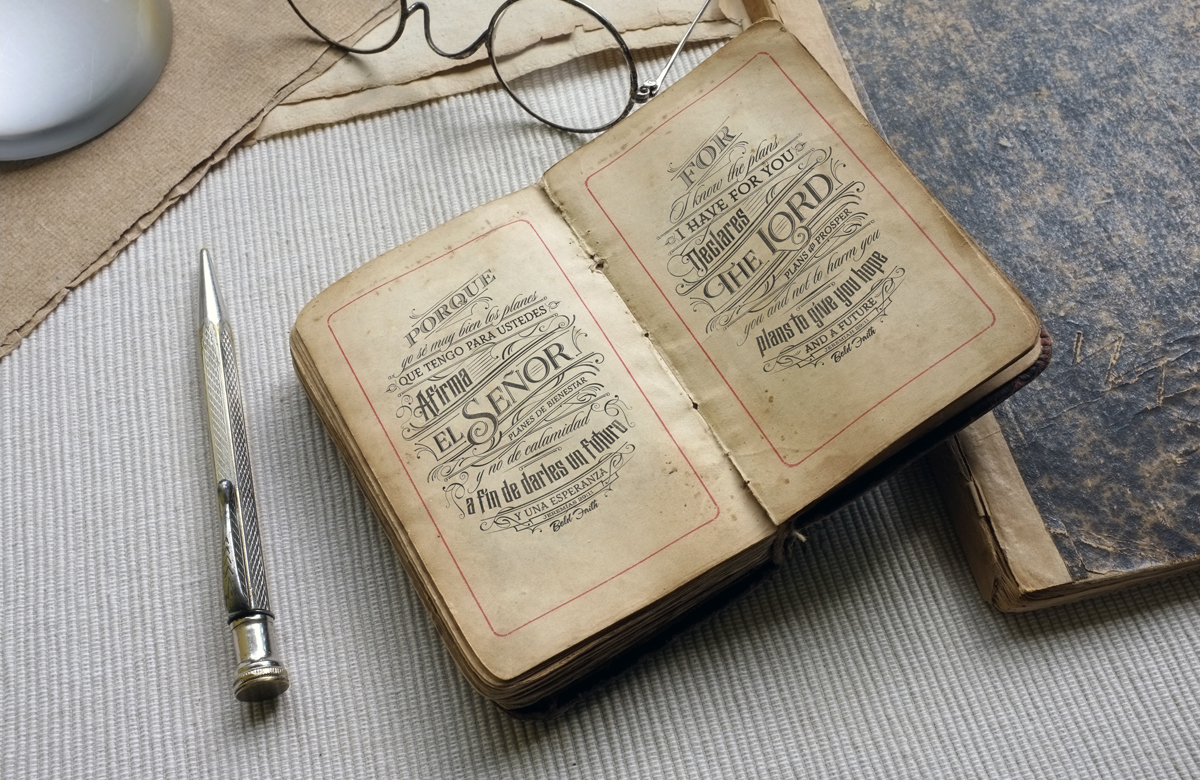 PORQUE
yo sé muy bien los planes
QUE TENGO PARA USTEDES
Afirma
EL SEÑOR
PLANES DE BIENESTAR
y no de calamidad
a fin de darles un futuro
Y UNA ESPERANZA
JEREMÍAS 29:11
Bold Faith
FOR
I know the plans
I HAVE FOR YOU
Declares
THE LORD
PLANS to PROSPER
you and not to harm you
plans to give you hope
AND A FUTURE
JEREMIAH 29:11
Bold Faith